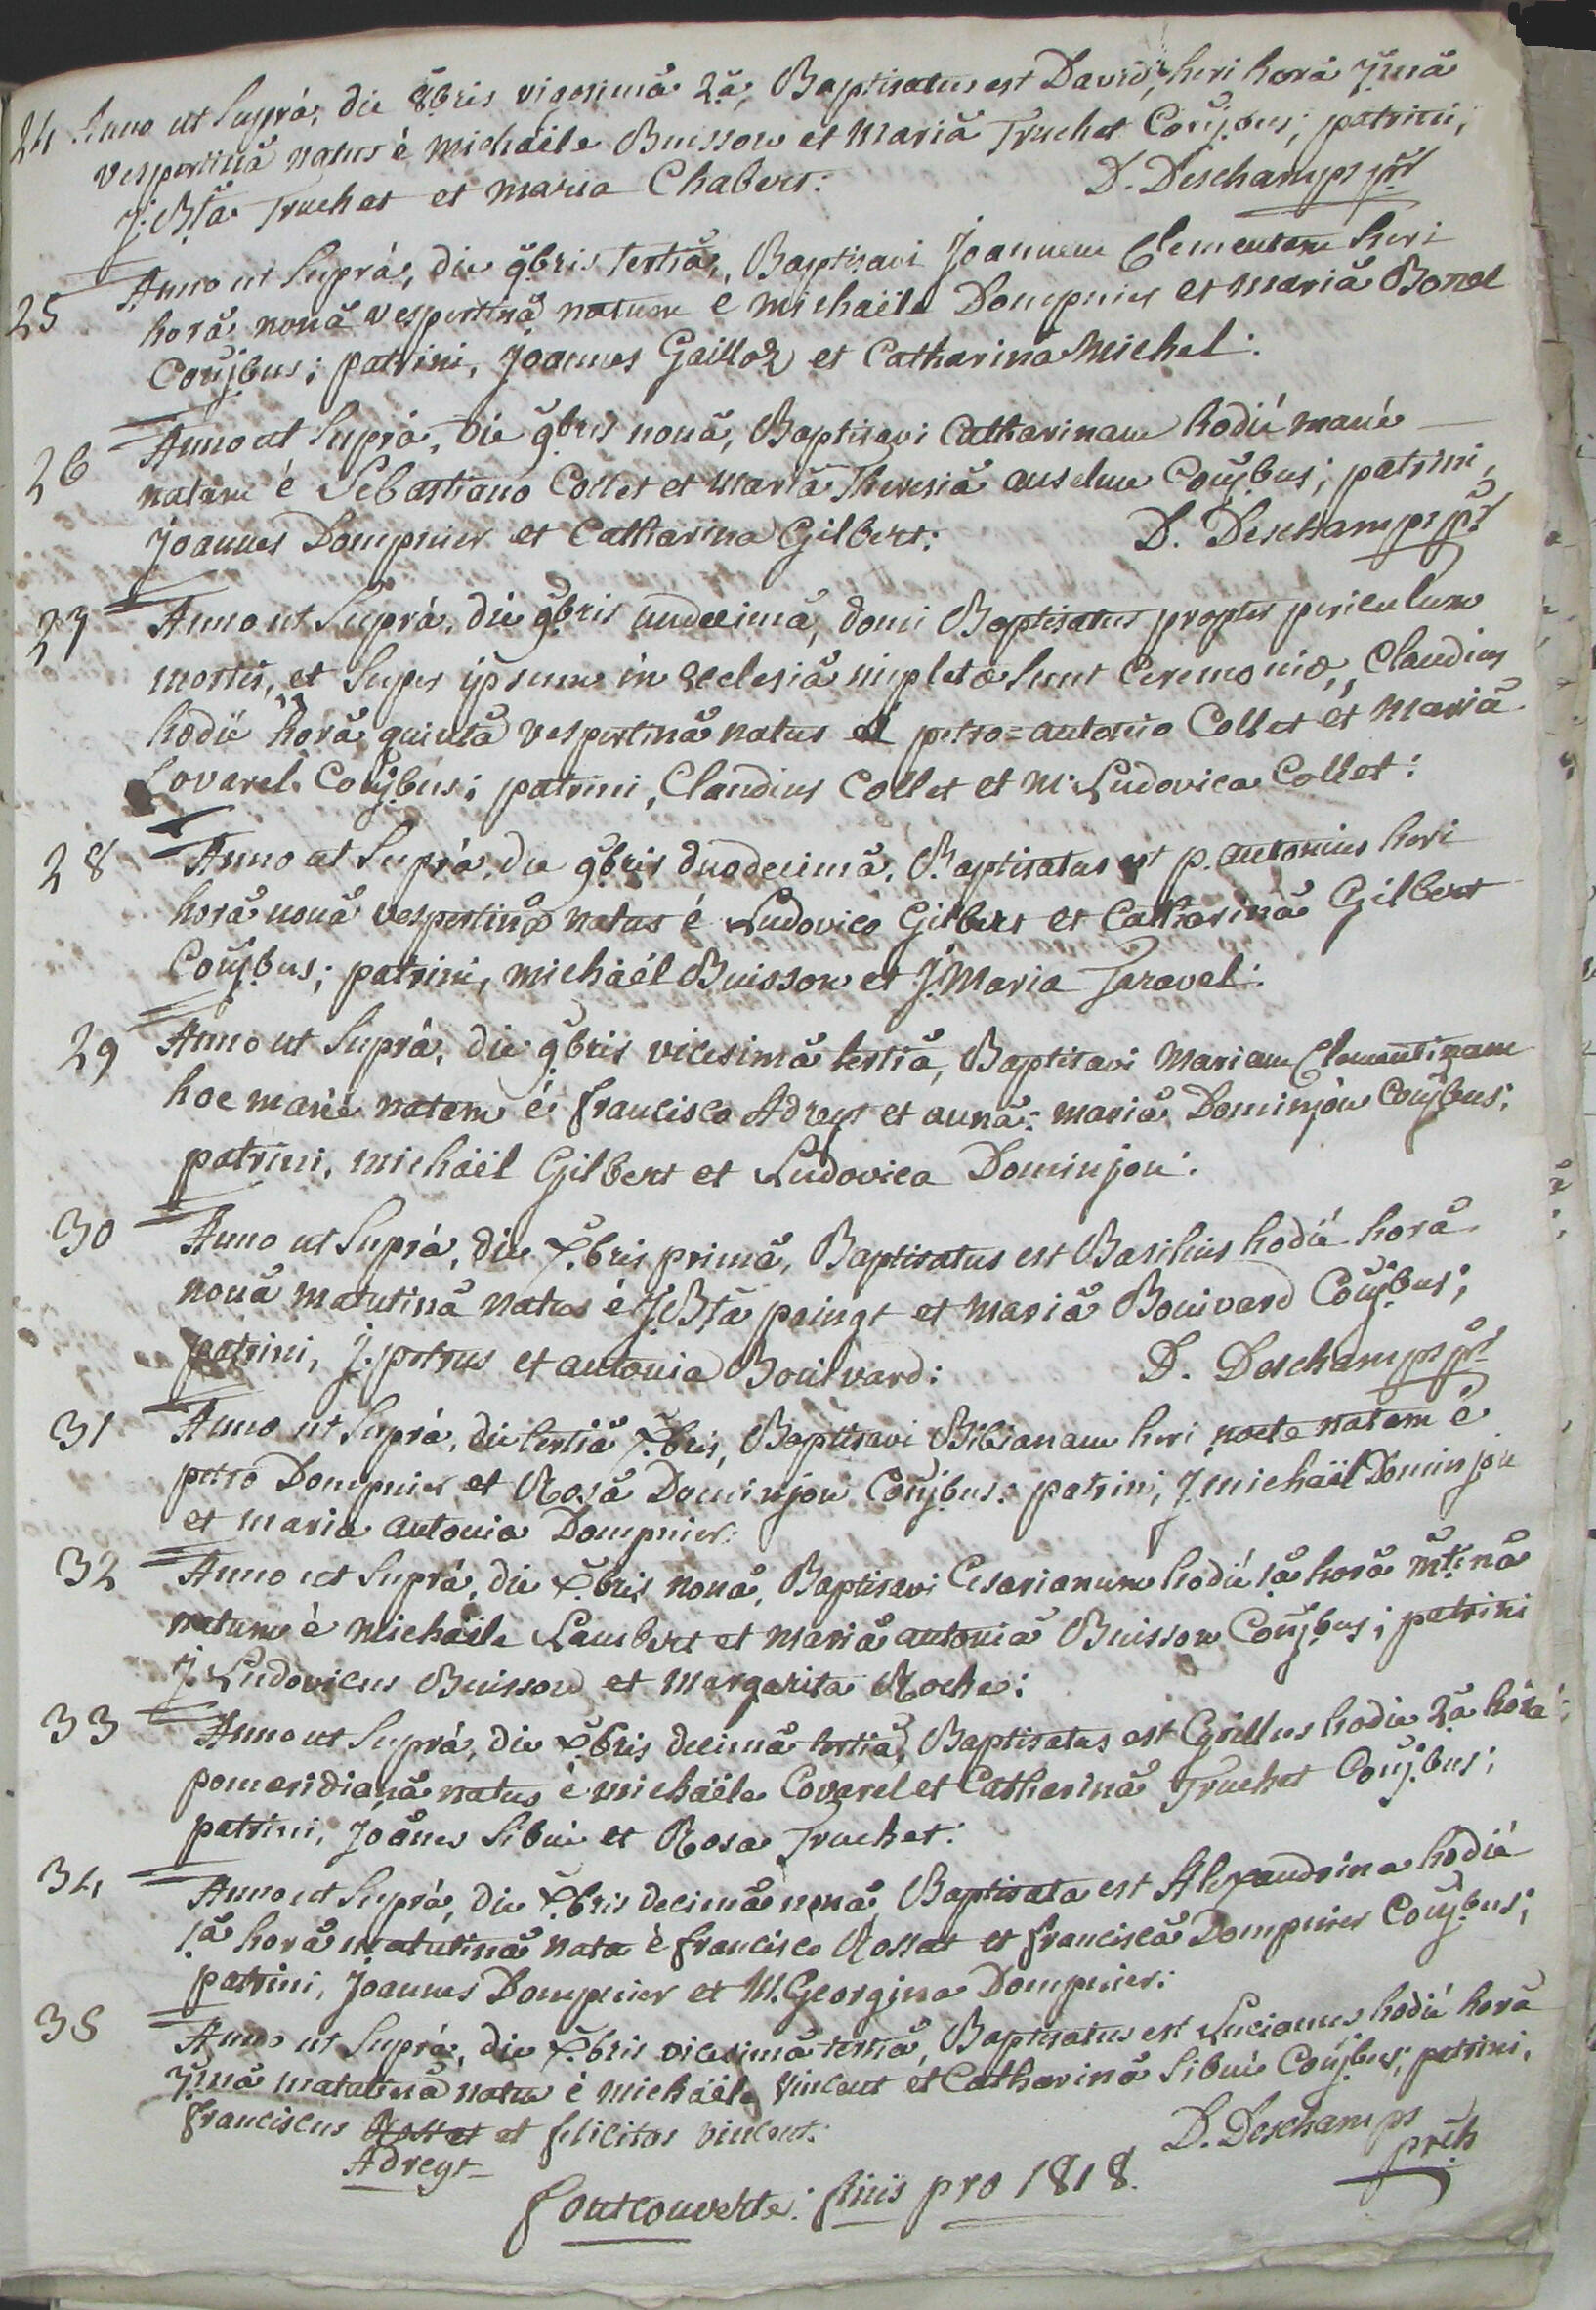 24 Anno ut Suprà, die 8bris vigesimâ 2â, Baptisatus est David, heri horâ 7imâ
vespertinâ natus é michäële Buisson et Mariâ Truchet Conjbus; patrini,
J. Bta Truchet et maria Chabert: D. Deschamps ptr
25 Anno ut Suprà, die 9bris tertiâ, Baptisavi Joannem Clementem heri
horâ nonâ vespertinâ natum é michäële Dompnier et mariâ Bonel
Conjbus; patrini, Joannes Gailloz et Catharina Michel:
26 Anno ut Suprà, die 9bris nonâ, Baptisavi Catharinam hodié manè
natam é Sebastiano Collet et mariâ Theresiâ anselme Conjbus; patrini,
Joannes Dompnier et Catharina Gilbert: D. Deschamps ptr
27 Anno ut Suprà, die 9bris undecimâ, domi Baptisatus propter periculum
mortis, et Super ipsum in Ecclesiâ impletæ Sunt Ceremoniæ, Claudius
hodié horâ quintâ vespertinâ natus é petro=antonio Collet et Mariâ
Covarel Conjbus; patrini, Claudius Collet et M. Ludovica Collet:
28 Anno ut Suprà, die 9bris duodecimâ, Baptisatus est p. antonius heri
horâ nonâ vespertinâ natus é Ludovico Gilbert et Catharinâ Gilbert
Conjbus; patrini, michäél Buisson et J. Maria Taravel:
29 Anno ut Suprà, die 9bris vicesimâ tertiâ, Baptisavi Mariam Clementinam
hoc manè natam é francisco Adreyt et annâ=mariâ Dominjon Conjbus;
patrini, michäél Gilbert et Ludovica Dominjon:
30 Anno ut Suprà, die Xbris primâ, Baptisatus est Basilius hodié horâ
nonâ matutinâ natus é J. Bta paingt et mariâ Bouivard Conjbus;
patrini, J. petrus et antonia Bouivard: D. Deschamps ptr
31 Anno ut Suprà, die tertiâ Xbris, Baptisavi Bibianam heri nocte natam é
petro Dompnier et Rosâ Dominjon Conjbus: patrini, J. michäél Dominjon
et maria antonia Dompnier:
32 Anno ut Suprà, die Xbris nonâ, Baptisavi Cesarianum hodié 1â horâ mtinâ
natum é michäële Lambert et mariâ antoniâ Buisson Conjbus; patrini
J. Ludovicus Buisson et Margarita Roche:
33 Anno ut Suprà, die Xbris decimâ tertiâ, Baptisatus est Cyrillus hodie 2â horâ
pomeridianâ natus é michäële Covarel et Catharinâ Truchet Conjbus;
patrini, Joânes Sibué et Rosa Truchet:
34 Anno ut Suprà, die Xbris decimâ nonâ, Baptisata est Alexandrina hodié
1â horâ matutinâ nata é francisco Rossat et franciscâ Dompnier Conjbus;
patrini, Joannes Dompnier et M. Georgina Dompnier:
35 Anno ut Suprà, die Xbris vicesimâ tertiâ, Baptisatus est Lucianus hodié horâ
7imâ matutinâ natus é michäële Vincent et Catharinâ Sibué Conjbus, patrini,
franciscus Rossat et felicitas Vincent: D. Deschamps
Adreyt prêh
fontcouverte: finis pro 1818.